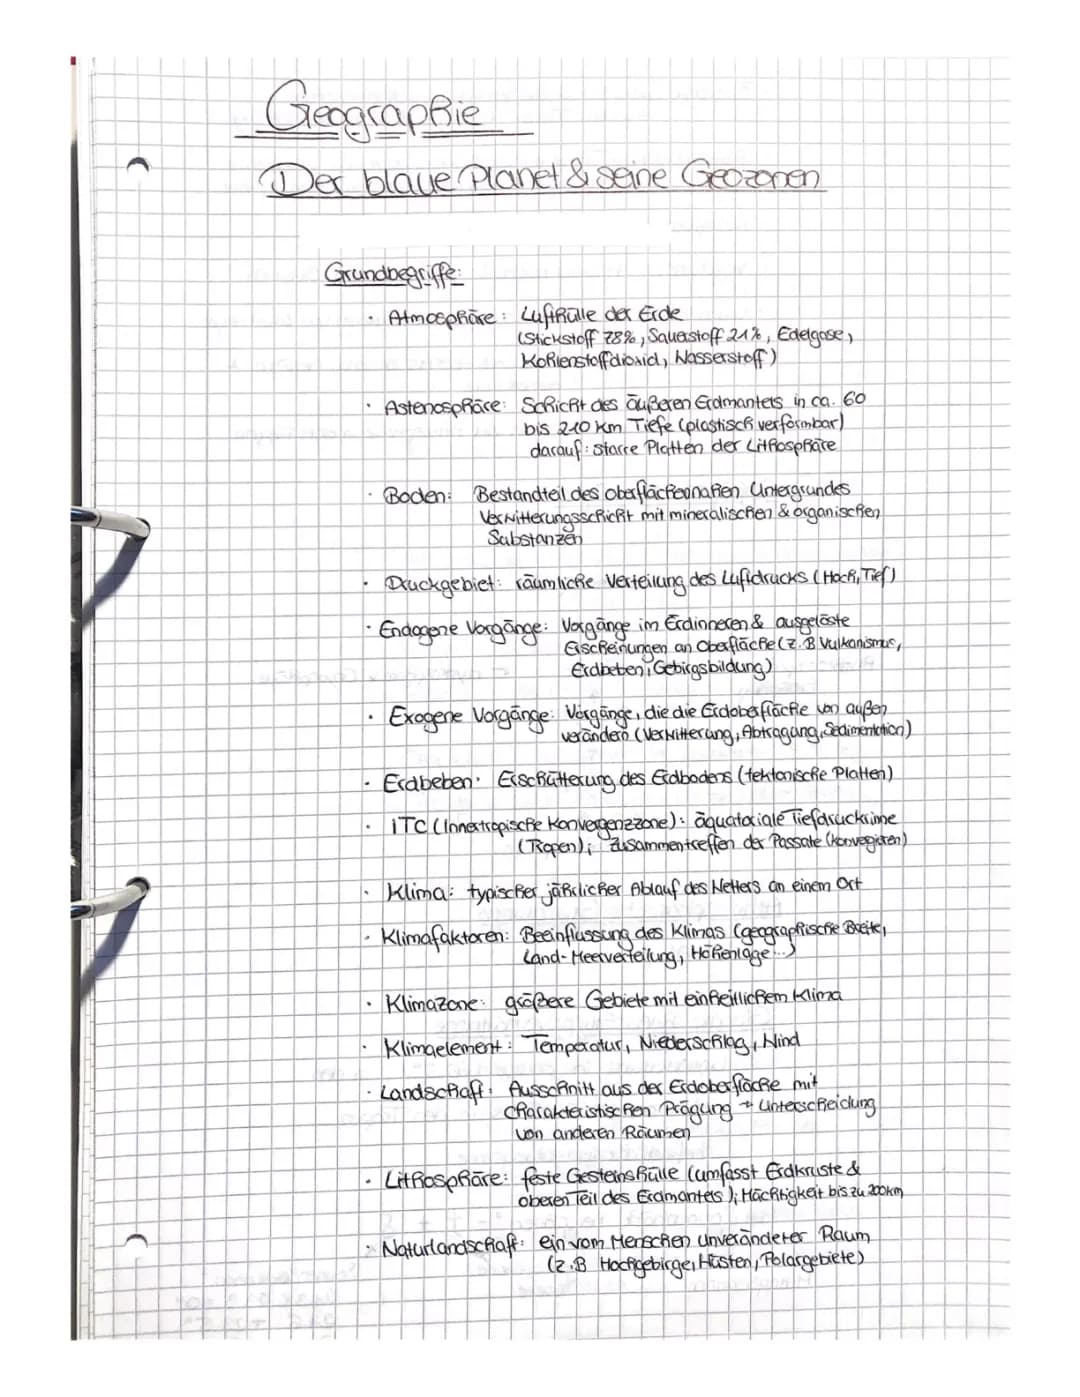 Geographie
Der blaue Planet & seine Geozonen
Grundbegriffe:
· Atmosphäre: Lufthülle der Erde
(Stickstoff 78%, Sauerstoff 21%, Edelgase,
Kohlenstoffdioxid, Wasserstoff)
· Astenosphäre: Schicht des äußeren Erdmantels in ca. 60
bis 210 km Tiefe (plastisch verformbar)
darauf: starre Platten der Lithosphäre
· Boden: Bestandteil des oberflächennahen Untergrundes
Verwitterungsschicht mit mineralischen & organischen
Substanzen
· Druckgebiet: räumliche Verteilung des Luftdrucks (Hoch, Tief)
· Endogene Vorgänge: Vorgänge im Erdinneren & ausgelöste
Erscheinungen an Oberfläche (z.B Vulkanismus,
Erdbeben, Gebirgsbildung)
· Exogene Vorgänge: Vorgänge, die die Erdoberfläche von außen
verändern (Verwitterung, Abtragung, Sedimentation)
· Erdbeben: Erschütterung des Erdbodens (tektonische Platten)
· ITC (Innertropische Konvergenzzone): äquatoriale Tiefdruckrinne
(Tropen); Zusammentreffen der Passate (konvegieren)
· Klima: typischer jährlicher Ablauf des Wetters an einem Ort
· Klimafaktoren: Beeinflussung des Klimas (geographische Breite,
Land-Meerverteilung, Höhenlage...)
· Klimazone: größere Gebiete mit einheitlichem Klima
· Klimaelement: Temperatur, Niederschlag, Wind
· Landschaft: Ausschnitt aus der Erdoberfläche mit
charakteristischen Prägung → Unterscheidung
von anderen Räumen
· Lithosphäre: feste Gesteinshülle (umfasst Erdkruste &
oberen Teil des Erdmantels); Mächtigkeit bis zu 200km
· Naturlandschaft: ein vom Menschen unveränderter Raum
(z.B Hochgebirge, Wüsten, Polargebiete)